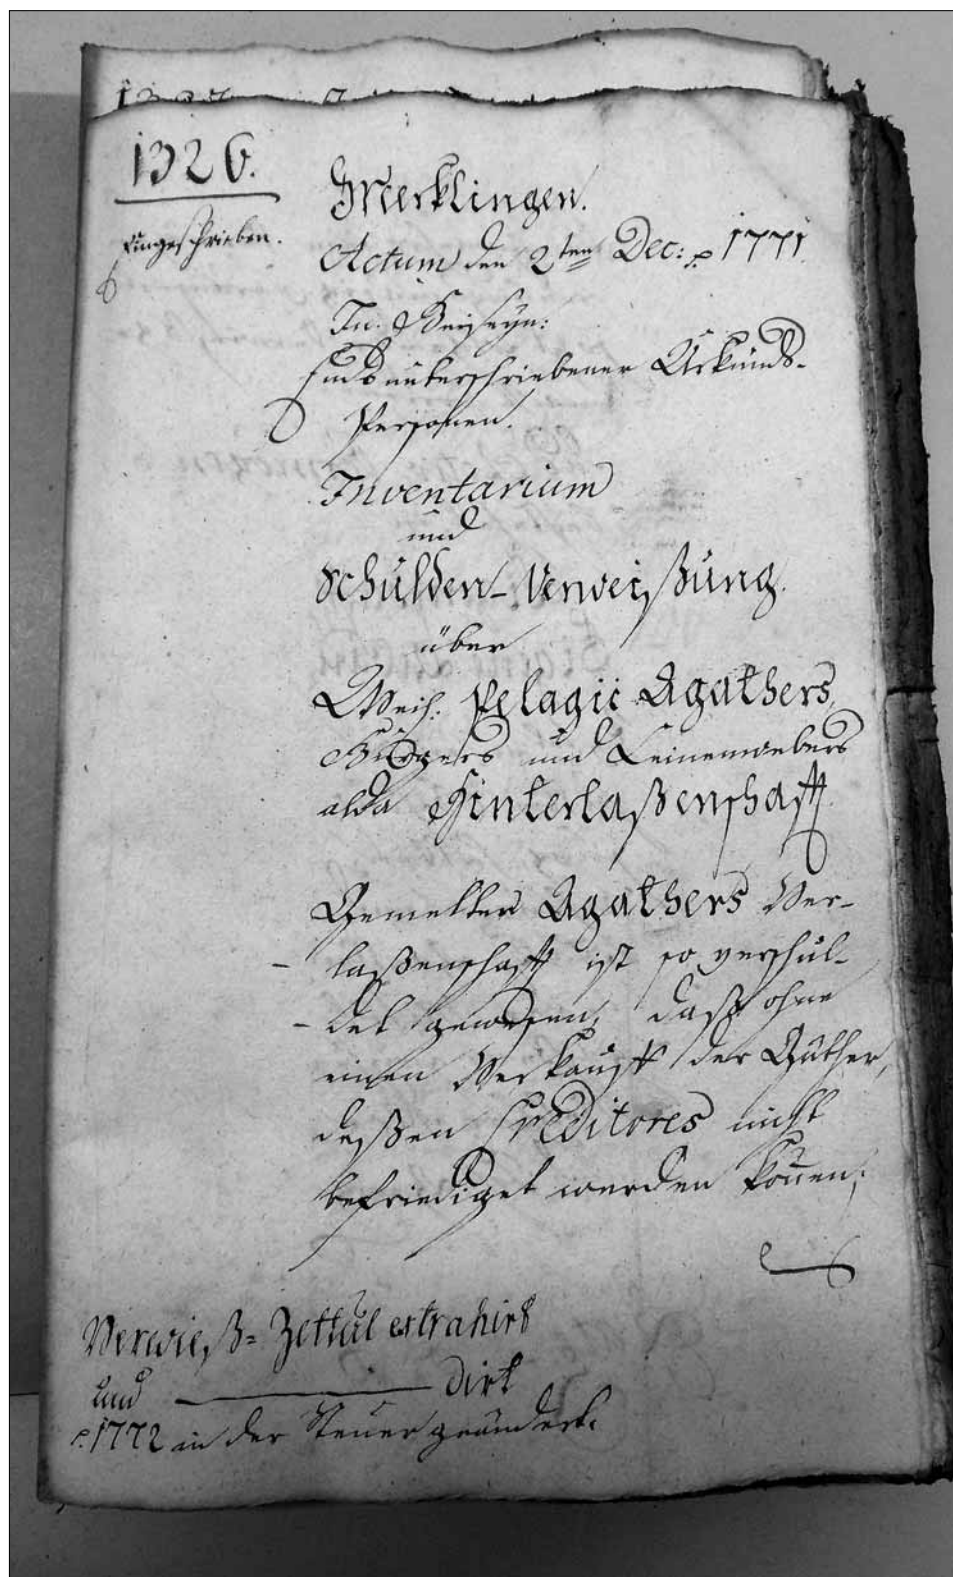 1326.
Eingeschrieben.
Merklingen.
Actum den 2ten Dec: 1771
In Beyseyn:
Ends unterschriebener Urkunds-
Personen.
Inventarium
und
Schulden-Verweißung.
über
Weil. Pelagii Agathers,
Burgers und Leinenwebers
alda Hinterlaßenschafft
Gemelter Agathers Ver-
laßenschafft ist so verschul-
det gewesen, daß ohne
einen Verkaufft der Güther,
deßen Creditores nicht
befriediget werden können;
Verwieß= Zettul extrahirt
und ——— dirt
p. 1772 in der Steuer geändert.